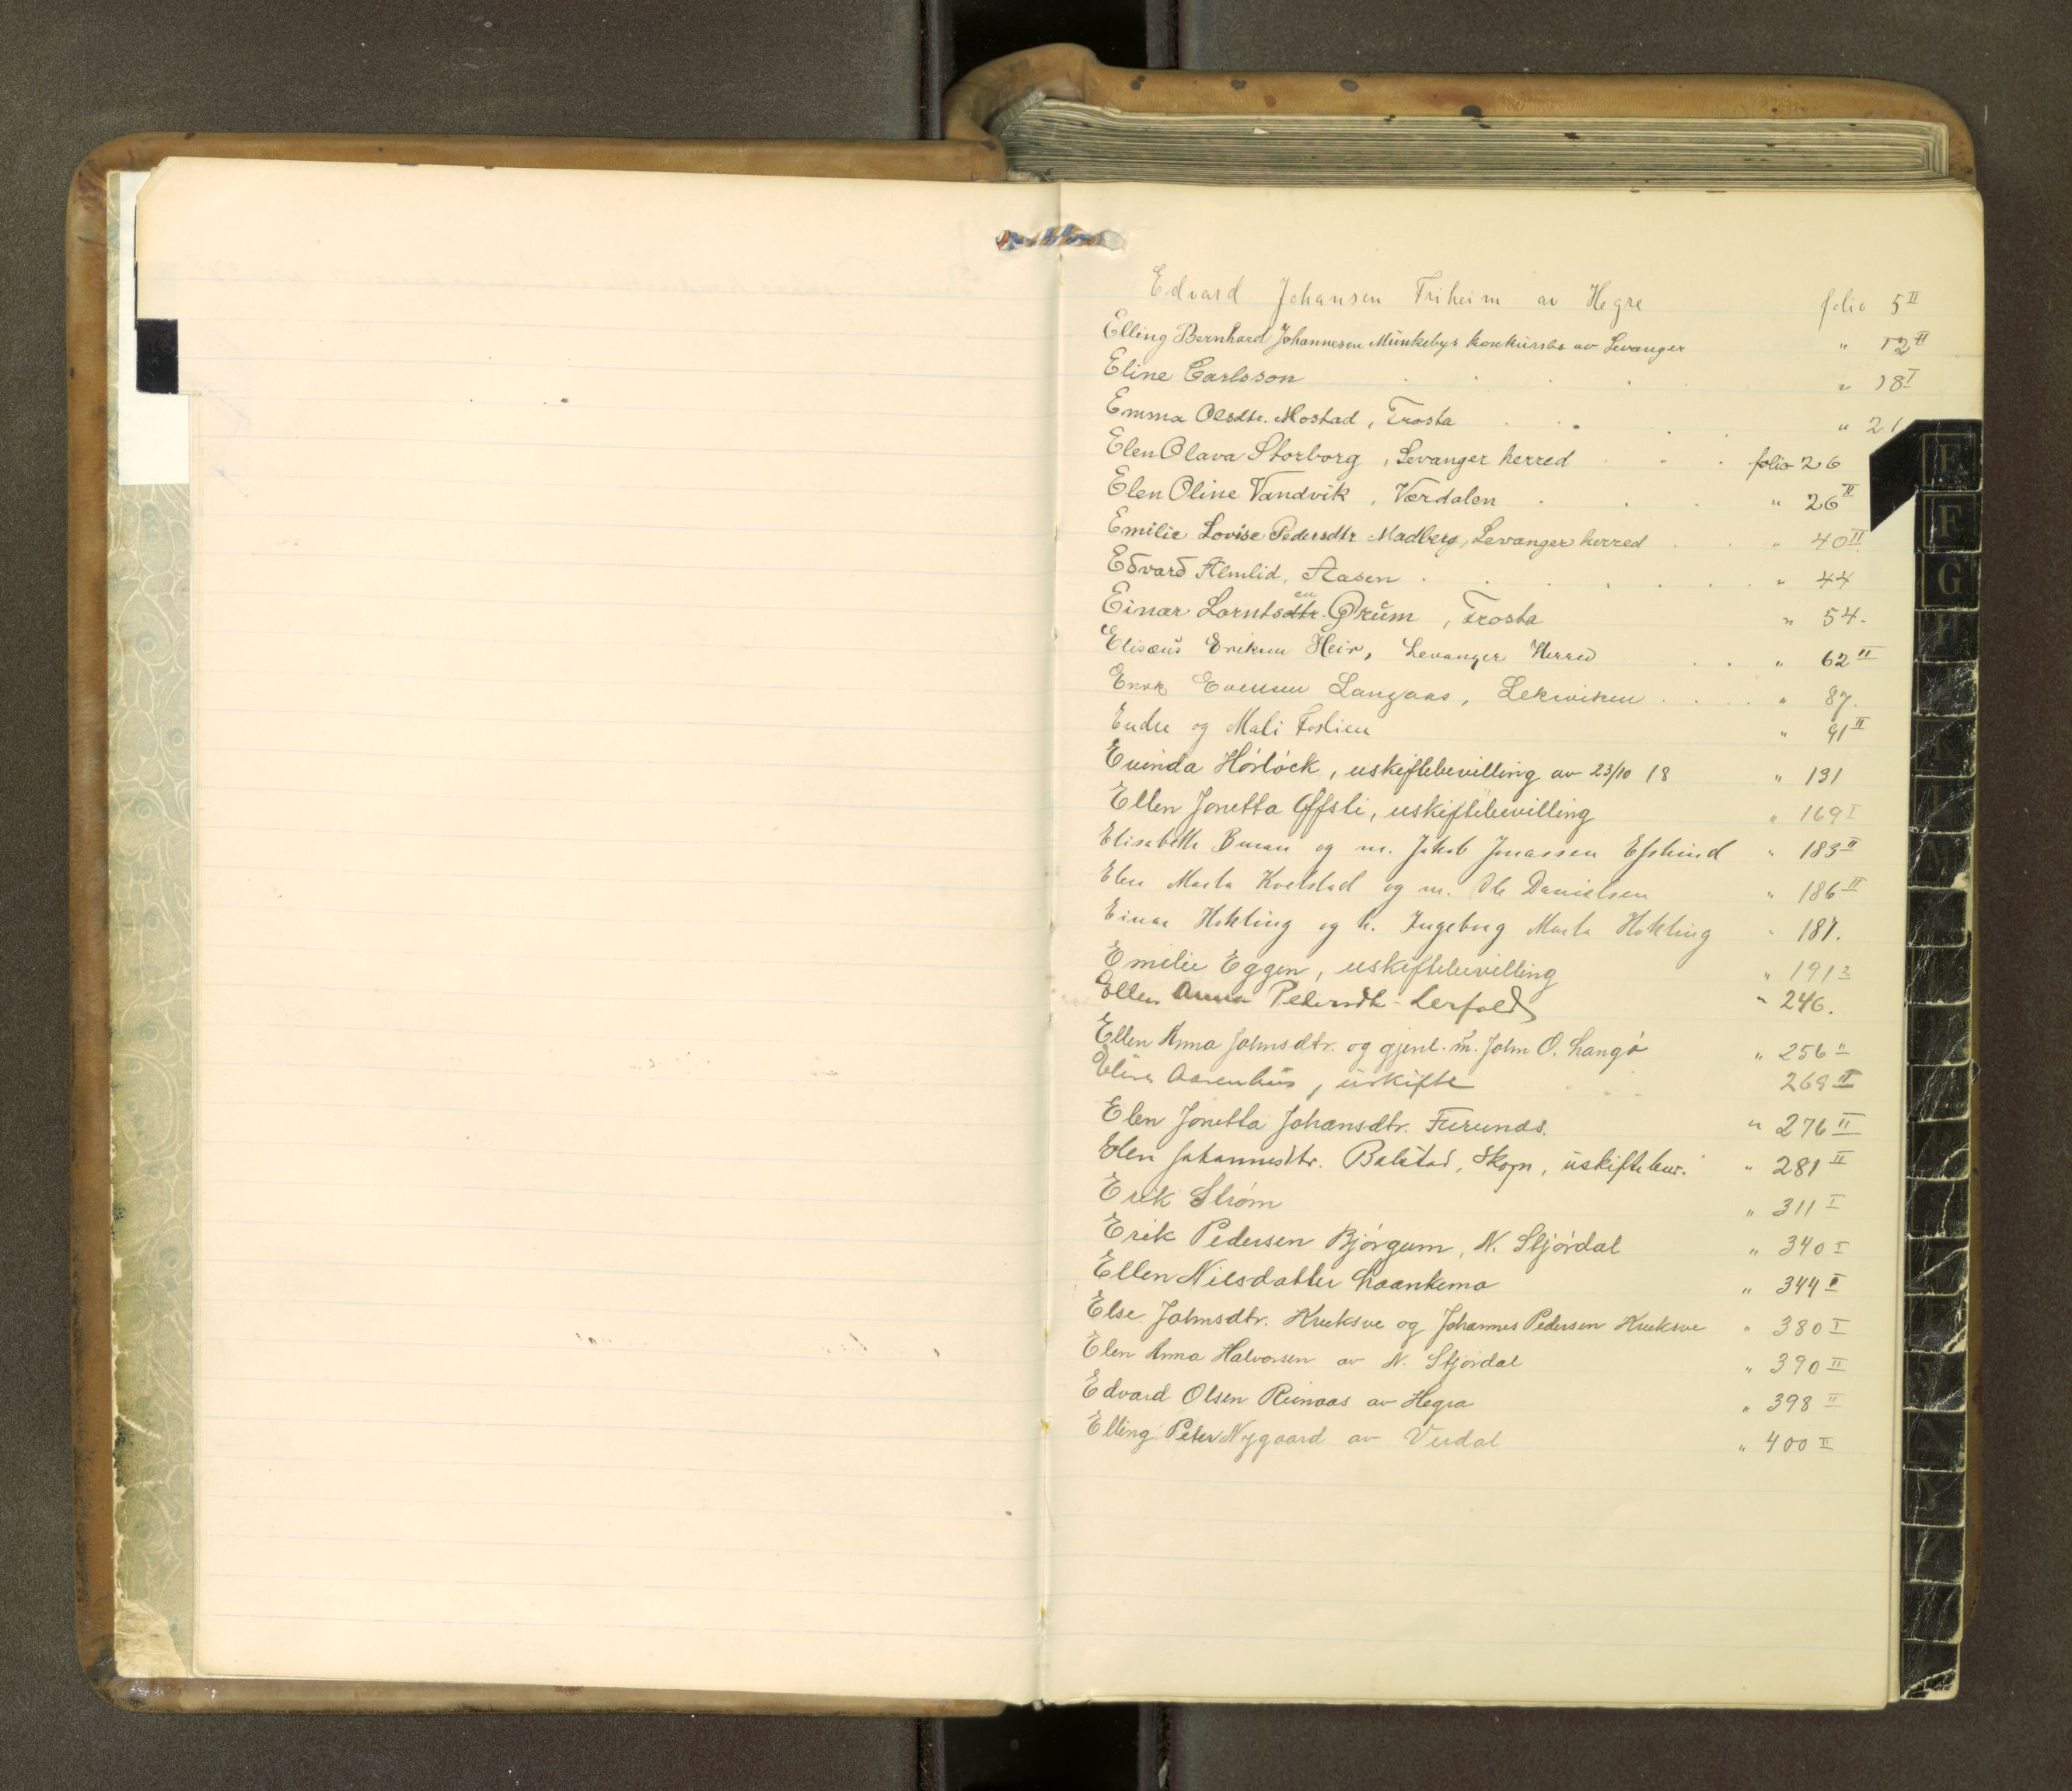 Edvard Johansen Friheim av Hegre folio 5 II
Elling Bernhard Johannesen Munkebys konkursbo av Levanger " 12 II
Eline Carlsson " 18 I
Emma Olsdtr. Mostad, Frosta " 21
Elen Olava Storborg, Levanger herred folio 26
Elen Oline Vandvik, Værdalen " 26 II
Emilie Lovise Pedersdtr Madberg, Levanger herred " 40 II
Edvard Almlid, Aasen " 44
Einar Lorntsdtr.en Ørum, Frosta " 54.
Elisæus Eriksen Heir, Levanger Herred " 62 II
Enok Evensen Langaas, Leksviken " 87.
Endre og Mali Foslien " 91 II
Euinda Hörlöck, uskiftebevilling av 23/10 18 " 131
Ellen Jonetta Offsti, uskiftebevilling " 169 I
Elisabeth Buran og m. Jakob Jonassen " 183 II
Elen Marta Kvelstad og m. Ole Danielsen " 186 II
Einar Hokling og h. Ingeborg Marta Hokling " 187.
Emilie Eggen, uskiftebevilling " 191 2
Ellen Anna Pedersdt. Lerfald " 246.
Ellen Anna Johnsdtr. og gjenl. m. John O. Langø " 256 II
Elise Aasenhus, uskifte 269 II
Elen Jonetta Johansdtr. Furunes. " 276 II
Elen Johannesdtr. Balstad, Skogn, uskiftebev. " 281 II
Erik Strøm " 311 I
Erik Pedersen Bjørgum, N. Stjørdal " 340 I
Ellen Nilsdatter Laankemo " 344 I
Else Johnsdtr. Kruksve og Johannes Pedersen Kruksve " 380 I
Elen Anna Halvorsen av N. Stjørdal " 390 II
Edvard Olsen Reinaas av Hegra " 398 II
Elling Peter Nygaard av Verdal " 400 II
E
F
G